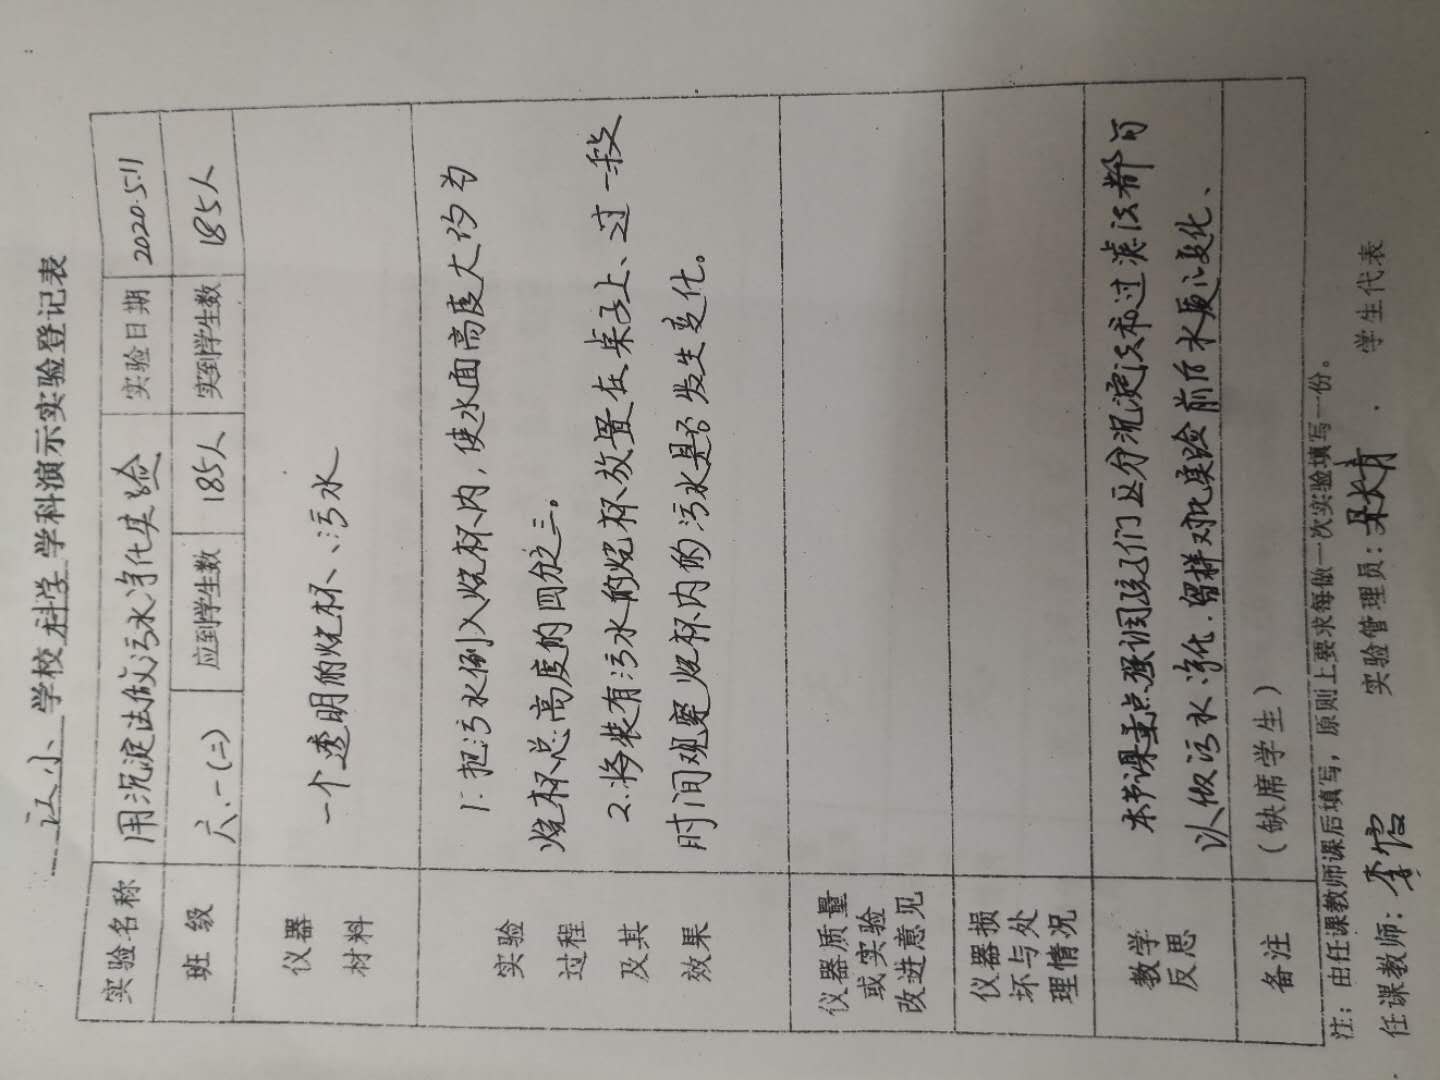 江小 学校 科学 学科演示实验登记表
实验名称 用沉淀法做污水净化实验 实验日期 2020.5.11
班 级 六.一(二) 应到学生数 185人 实到学生数 185人
仪器
材料
一个透明的烧杯、污水
实验
过程
及其
效果
1:把污水倒入烧杯内,使水面高度大约为
烧杯总高度的四分之三。
2.将装有污水的烧杯放置在桌子上、过一段
时间观察烧杯内的污水是否发生变化。
仪器质量
或实验
改进意见
仪器损
坏与处
理情况
教学
反思
本节课重点强调孩子们区分沉淀法和过滤法都可
以做污水净化.留样对比实验前后水质变化、
备注
(缺席学生)
注:由任课教师课后填写,原则上要求每做一次实验填写一份。
任课教师: 实验管理员: 学生代表